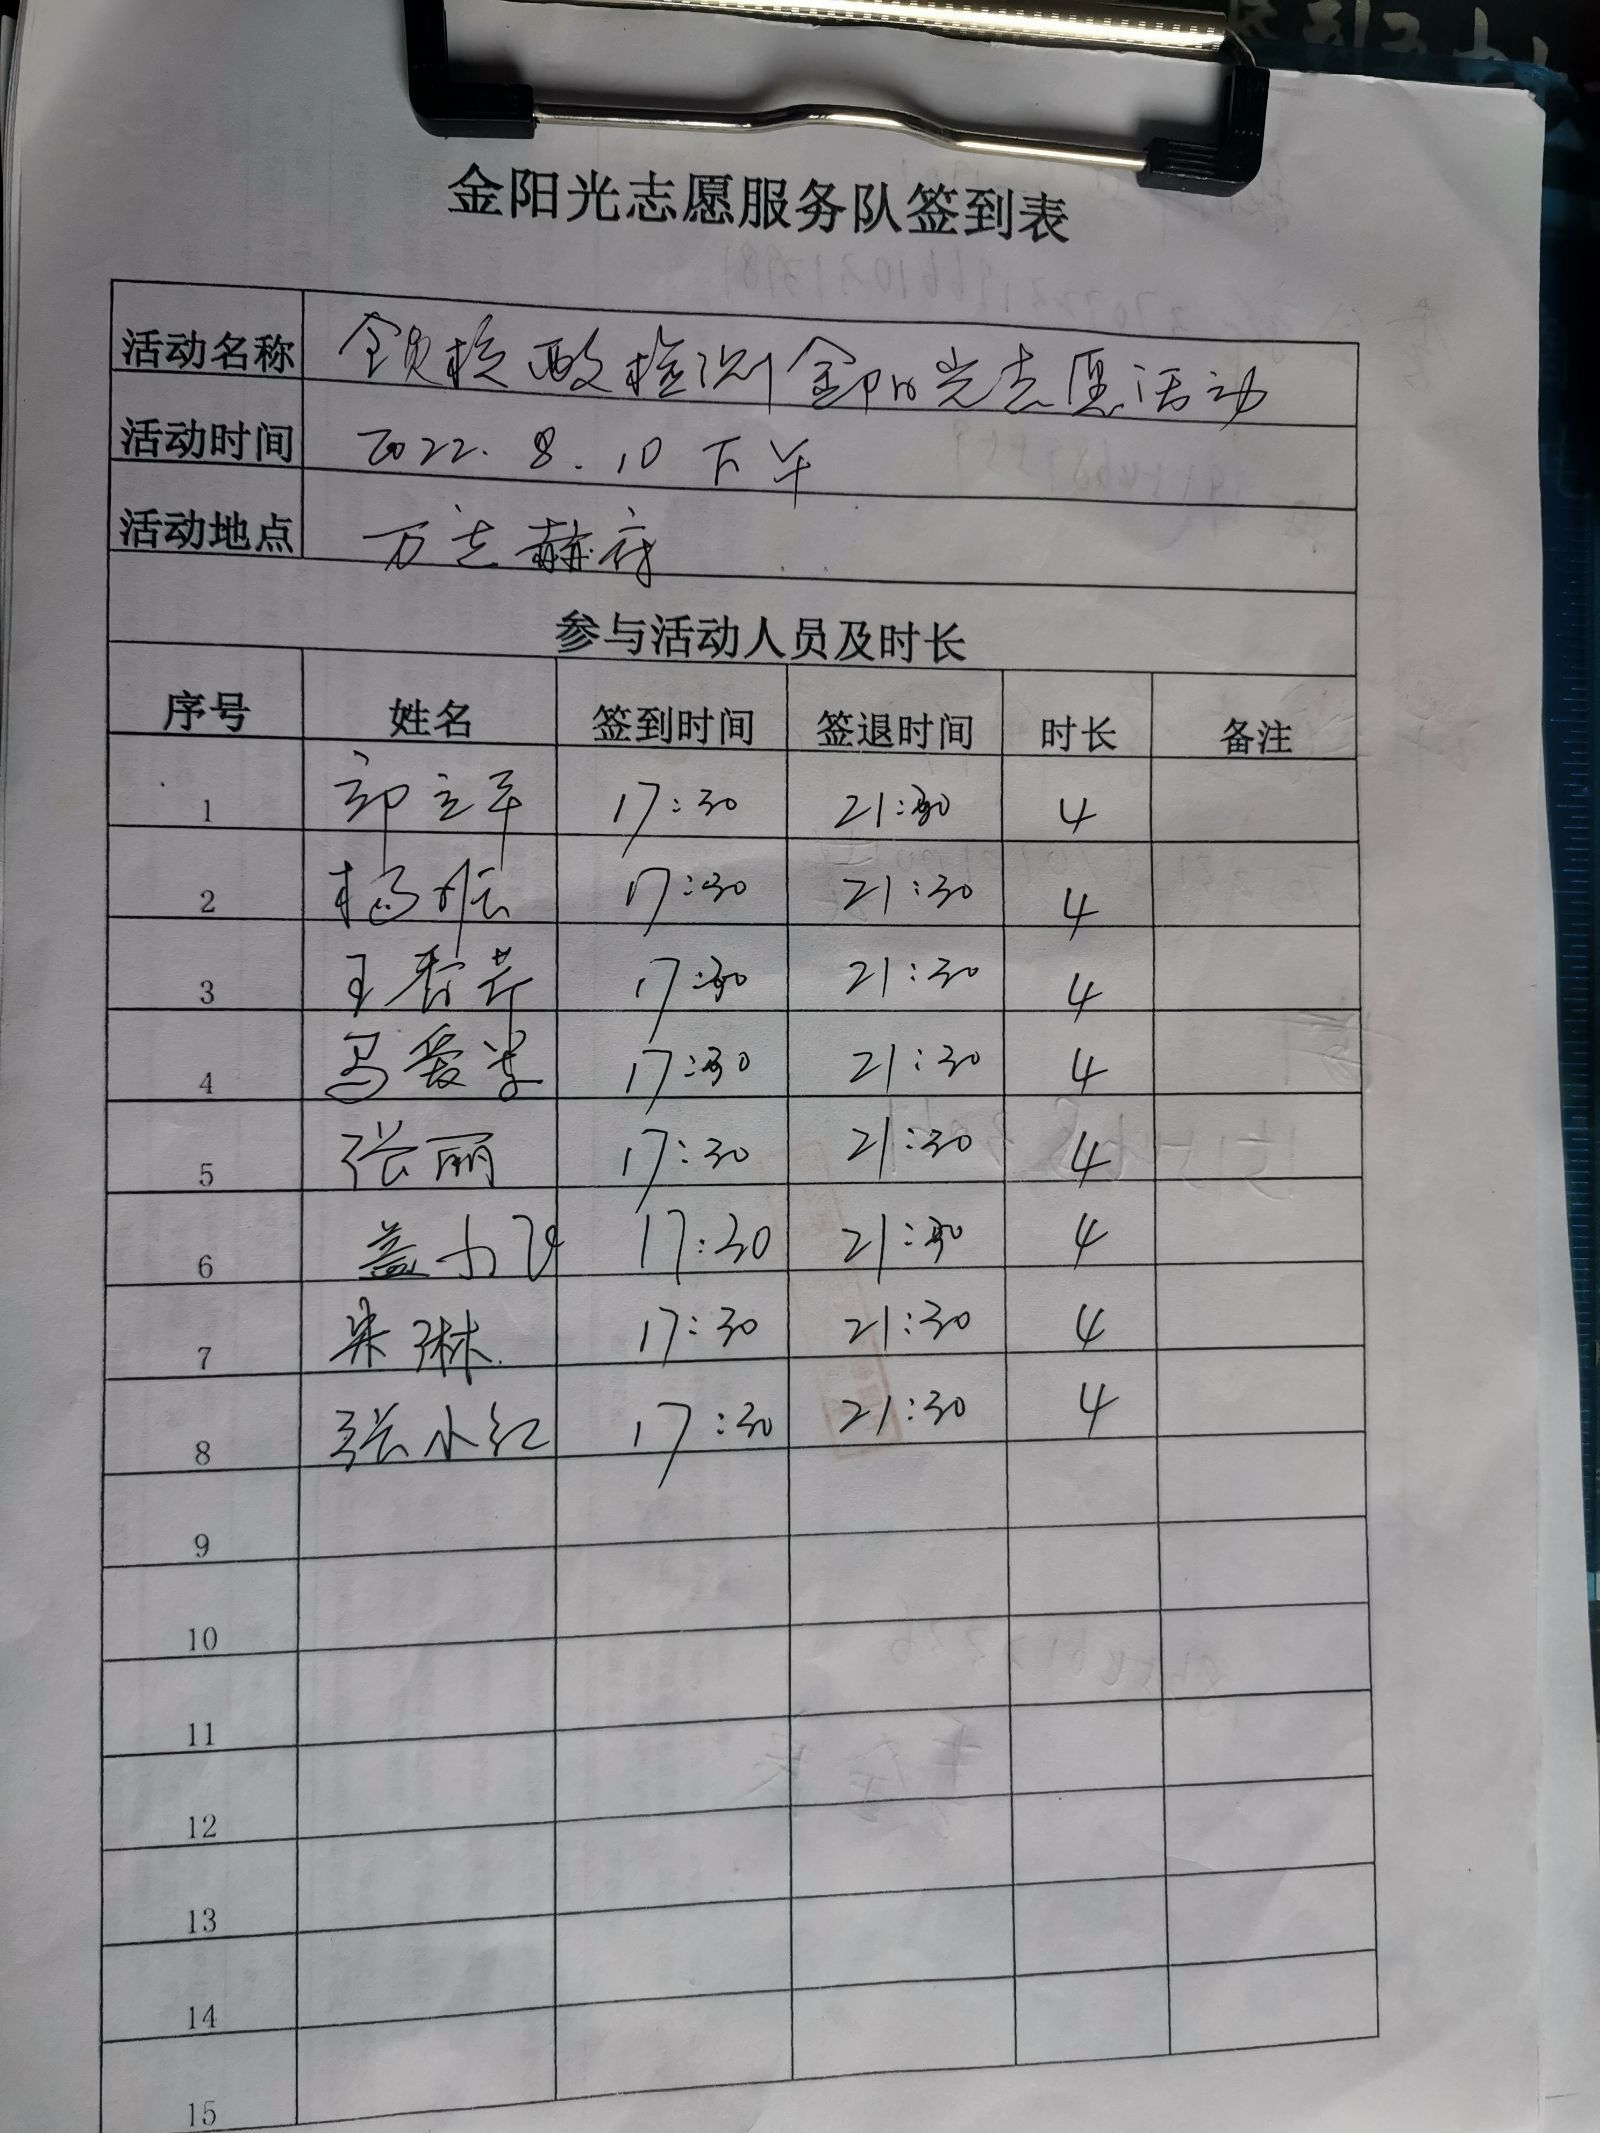 金阳光志愿服务队签到表
活动名称 全员核酸检测金阳光志愿活动
活动时间 2022.8.10 下午
活动地点 万志赫府
参与活动人员及时长
序号 姓名 签到时间 签退时间 时长 备注
1 立平 17:30 21:30 4
2 杨 17:30 21:30 4
3 王香芹 17:30 21:30 4
4 马爱 17:30 21:30 4
5 张丽 17:30 21:30 4
6 盖 17:30 21:30 4
7 琳 17:30 21:30 4
8 张小红 17:30 21:30 4
9
10
11
12
13
14
15